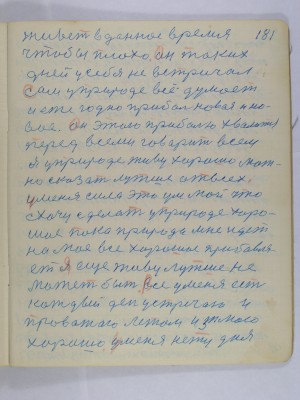 181
живет в денное время
чтобы плохо. Он таких
дней у себя не встричал
Сам у природе всё думает
и еже годно прибал новая и но-
вае. Он этого прибалю хвалит
перед всеми говорит всем
я у природе живу хорошо мож-
но сказат лутше а твсех.
у меня сила это ум мой это
схочу сделат у природе хоро-
шое пока природа мне идет
на мое все хорошое прибавля-
ет Я еще живу лутше не
может быт. Все у меня ест
каждый ден устречаю и
проважаю летом и зимою
хорошо у меня нету дня